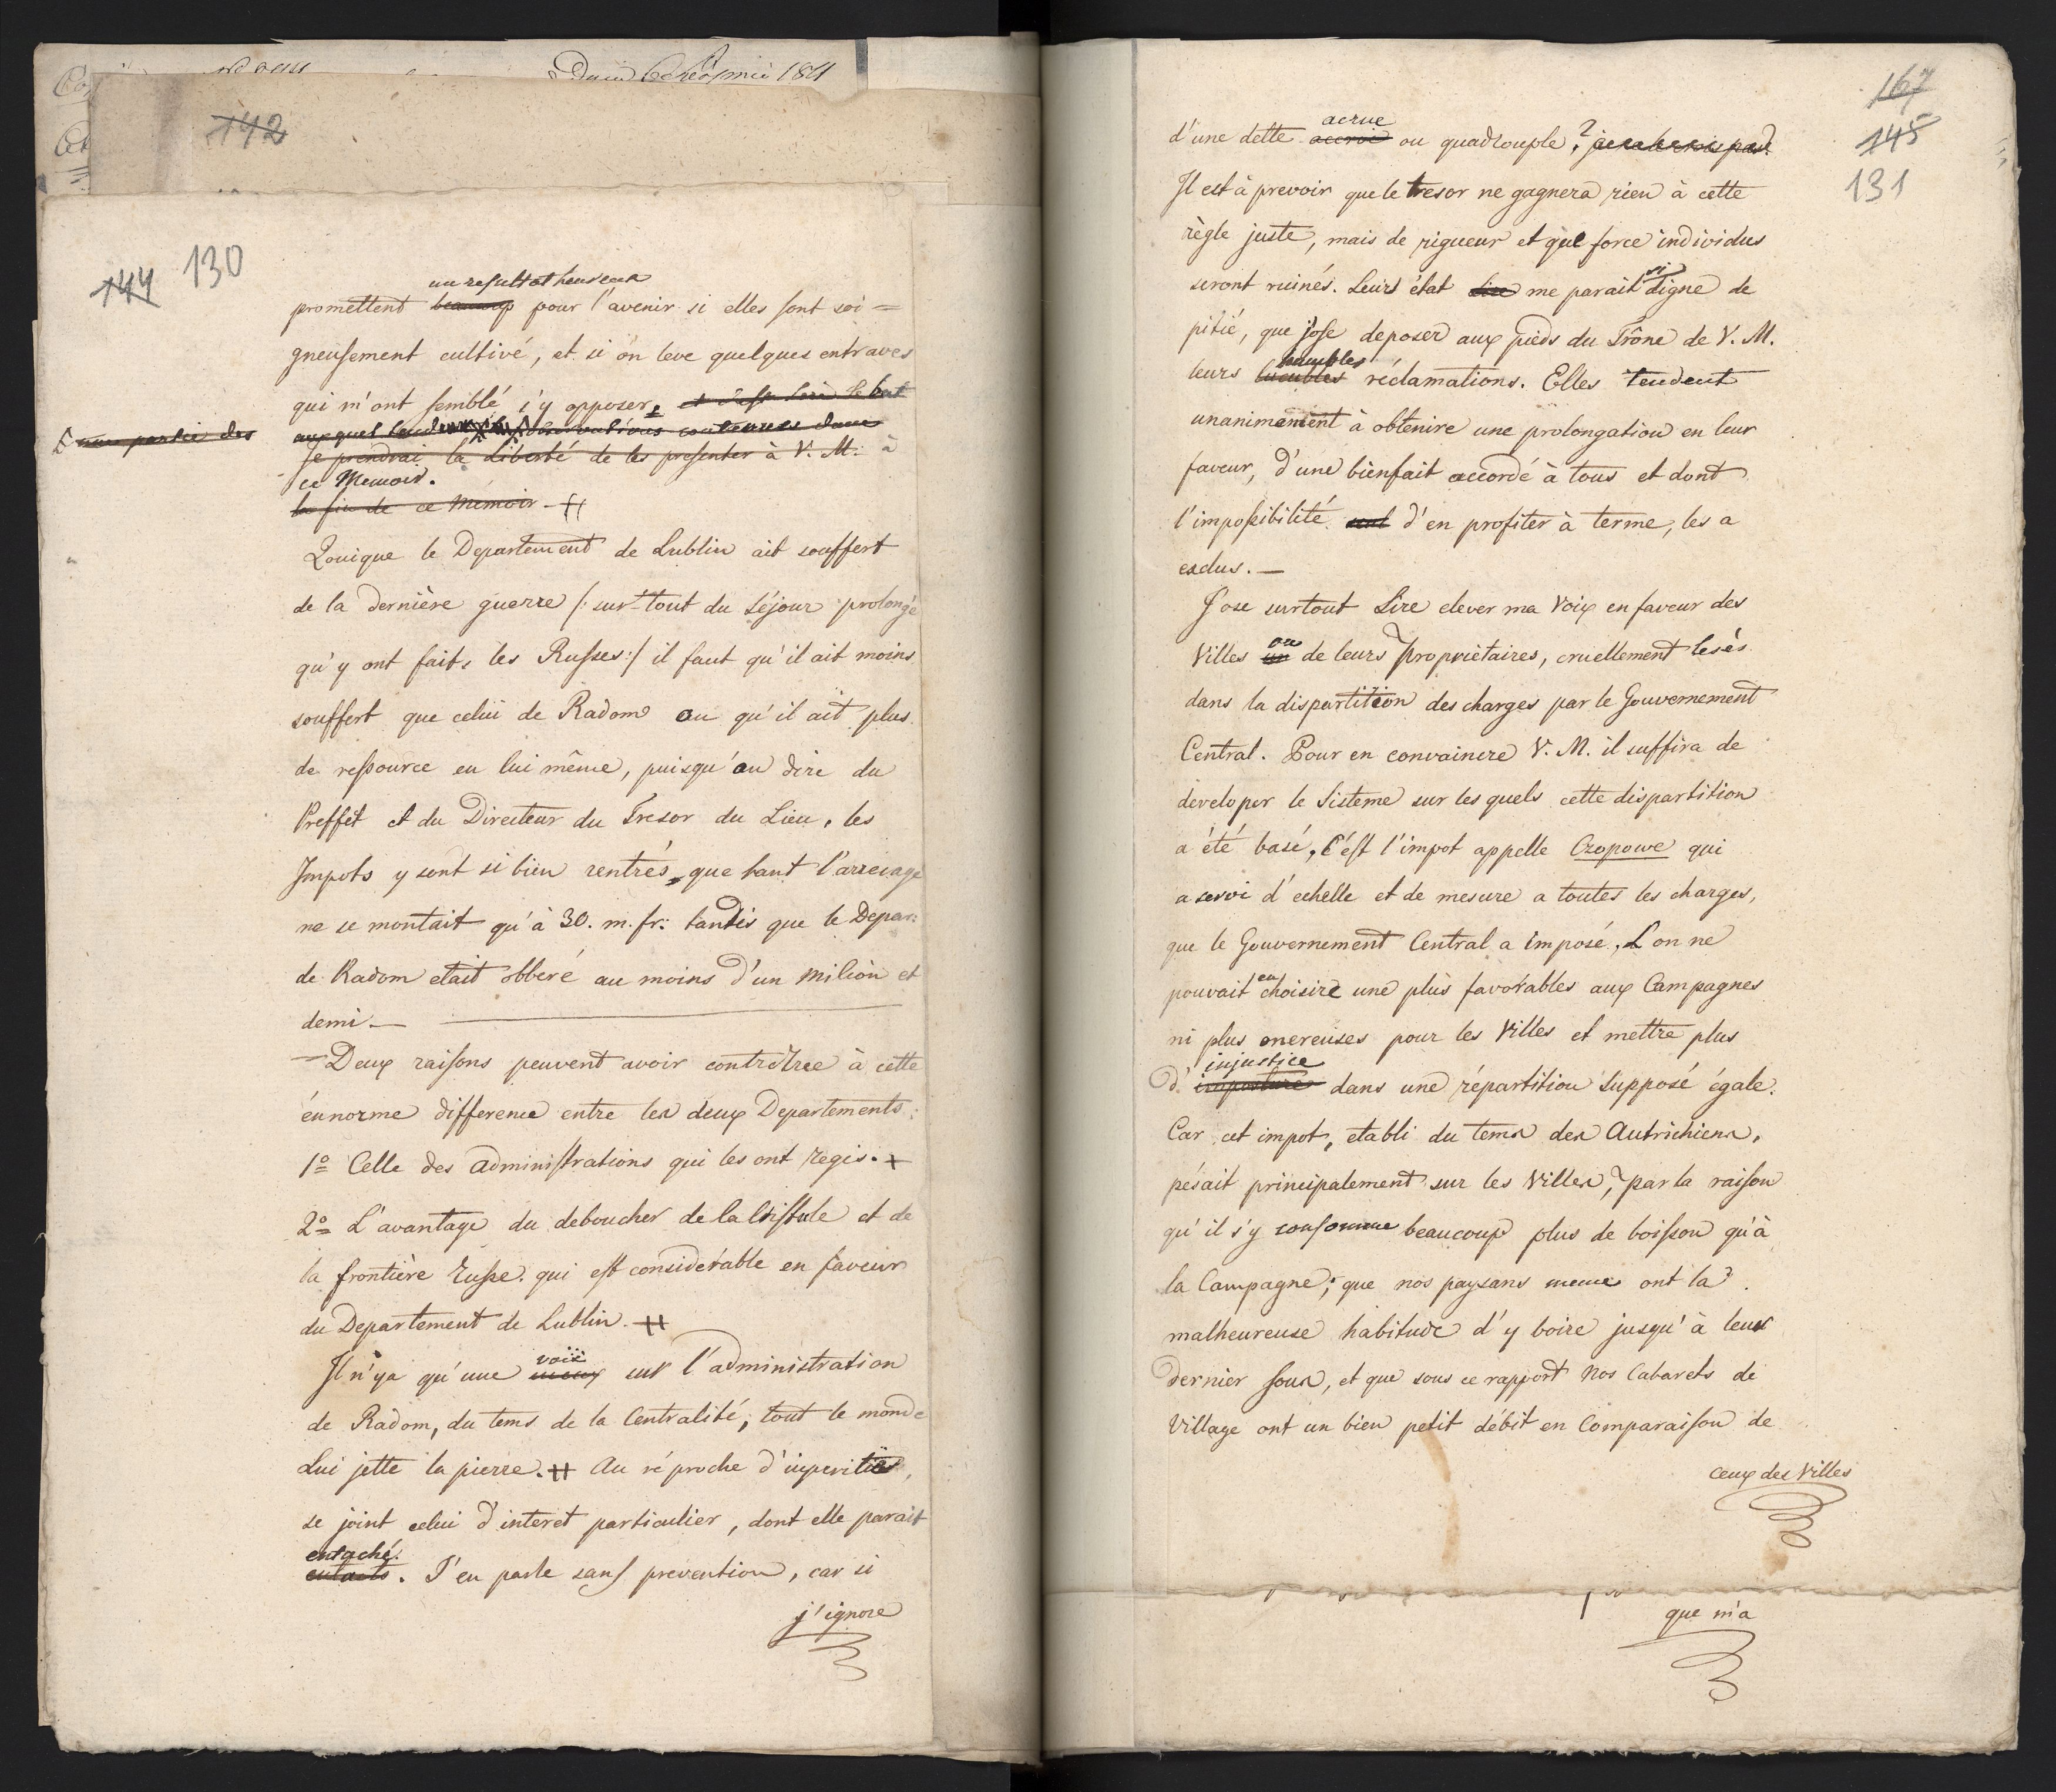 142
144 130
un resultat heureux
promettent beaucoup pour l'avenir si elles sont soi =
gneusement cultivé, et si on leve quelques entraves
qui m'ont semblé s'y opposer,
une partie des
Je prendrai la Liberté de les presenter à V. M. à
ce Memoir.
la fin de ce Mémoir
Qouique le Departement de Lublin ait souffert
de la dernière guerre /: sur-tout du Séjour prolongé
qu'y ont faits les Russes:/ il faut qu'il ait moins
souffert que celui de Radom ou qu'il ait plus
de ressource en lui même, puisqu'au dire du
Preffêt et du Directeur du Tresor du Lieu, les
Impots y sont si bien rentrés, que tant l'arrerage
ne se montait qu'à 30. m. fr: tandis que le Depar:
de Radom etait obberé au moins d'un milion et
demi.—
— Deux raisons peuvent avoir contribuée à cette
énnorme difference entre les deux Departements:
1º Celle des administrations qui les ont regis. +
2º L'avantage du deboucher de la Wistule et de
la frontière Russe. qui est considerable en faveur
du Departement de Lublin.
voix
Il n'ya qu'une sur l'administration
de Radom, du tems de la Centralité, tout le monde
Lui jette la pierre. Au réproche d'imperities,
se joint celui d'interet particulier, dont elle parait
entaché.
entacts. J'en parle sans prevention, car si
j'ignore
167
145
131
acrue
d'une dette accroi ou quadrouple?
Il est à prevoir que le tresor ne gagnera rien à cette
règle juste, mais de rigueur et que force individus
si
seront ruinés. Leurs état me parait digne de
pitié, que j'ose deposer aux pieds du Trône de V. M.
humbles
leurs réclamations. Elles tendent
unanimement à obtenire une prolongation en leur
faveur, d'une bienfait accordé à tous et dont
l'impossibilité seul d'en profiter à terme, les a
exclus. —
J'ose surtout Sire elever ma Voix en faveur des
ou
Villes un de leurs Propriétaires, cruellement lesés
dans la dispartition des charges par le Gouvernement
Central. Pour en convaincre V. M. il suffira de
developer le Sisteme sur les quels cette dispartition
a été basé, C'est l'impot appelle Czopowe qui
a servi d'echelle et de mesure a toutes les charges,
que le Gouvernement Central a imposé, L'on ne
en
pouvait choisire une plus favorables aux Campagnes
ni plus onereuses pour les Villes et mettre plus
injustice
d'imposture dans une répartition Supposé égale.
Car cet impot, etabli du tems des Autrichiens,
pésait principalement sur les Villes, par la raison
qu'il s'y consomme beaucoup plus de boisson qu'à
la Campagne; que nos paysans meme ont la
malheureuse habitude d'y boire jusqu'à leur
dernier sous, et que sous ce rapport Nos Cabarets de
Village ont un bien petit débit en Comparaison de
ceux des Villes
que m'a